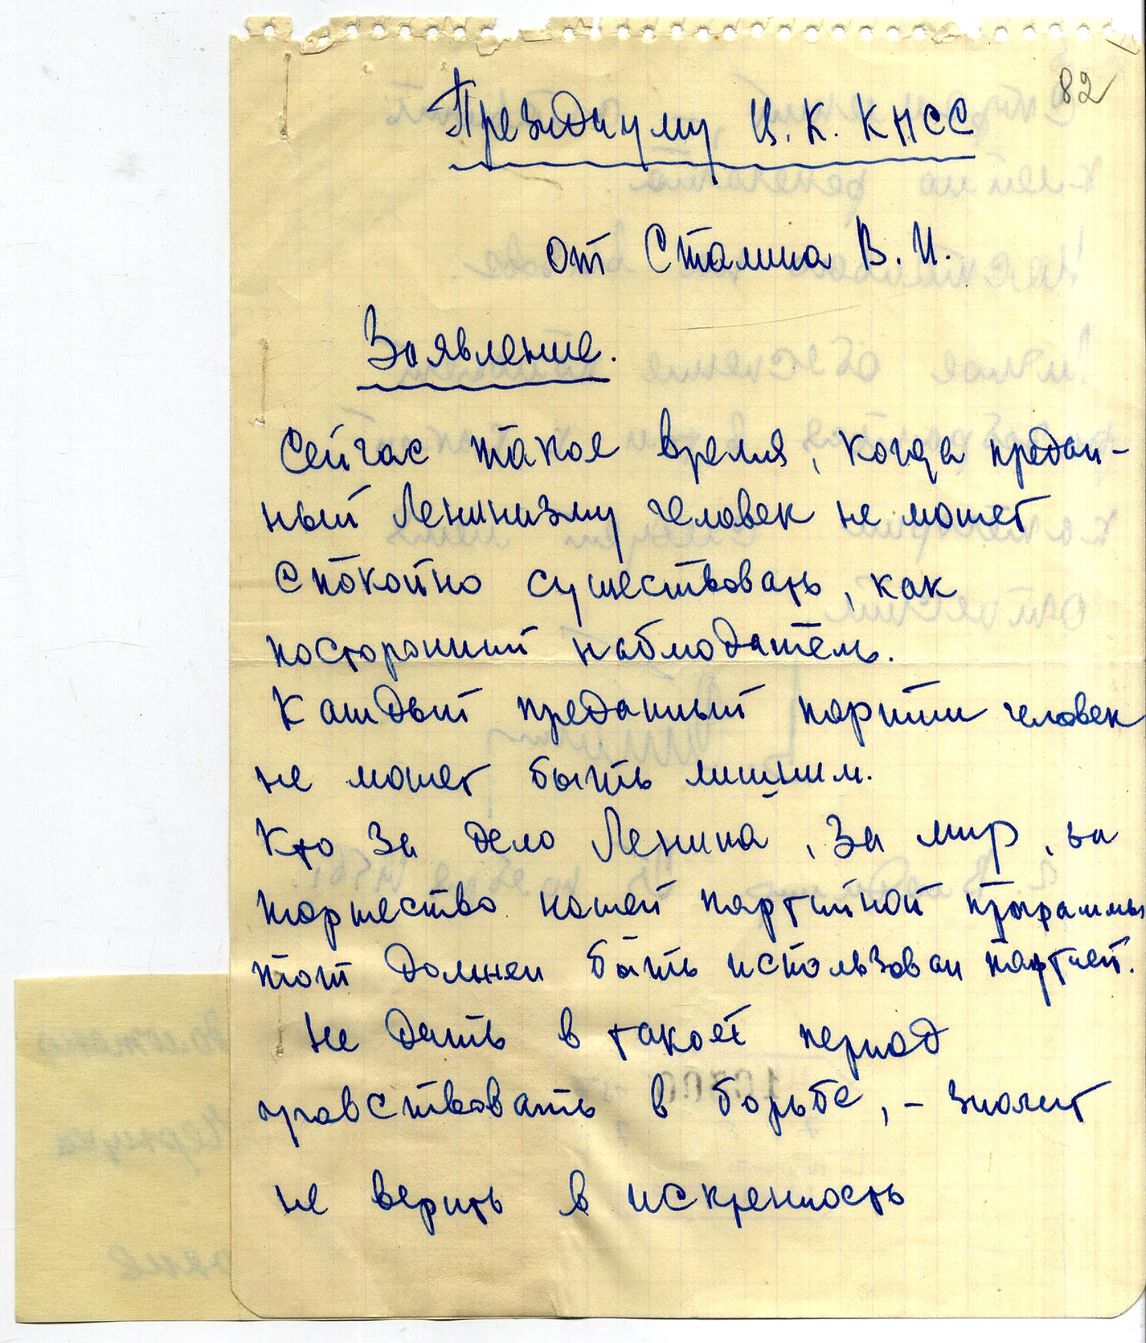 82
Президиуму Ц.К. КПСС
от Сталина В.И.
Заявление.
Сейчас такое время, когда предан-
ный Ленинизму человек не может
спокойно существовать, как
посторонний наблюдатель.
Каждый преданный партии человек
не может быть лишним.
Кто за дело Ленина, за мир, за
торжество нашей партийной программы
тот должен быть использован партией.
Не дать в такой период
участвовать в борьбе, – значит
не верить в искренность